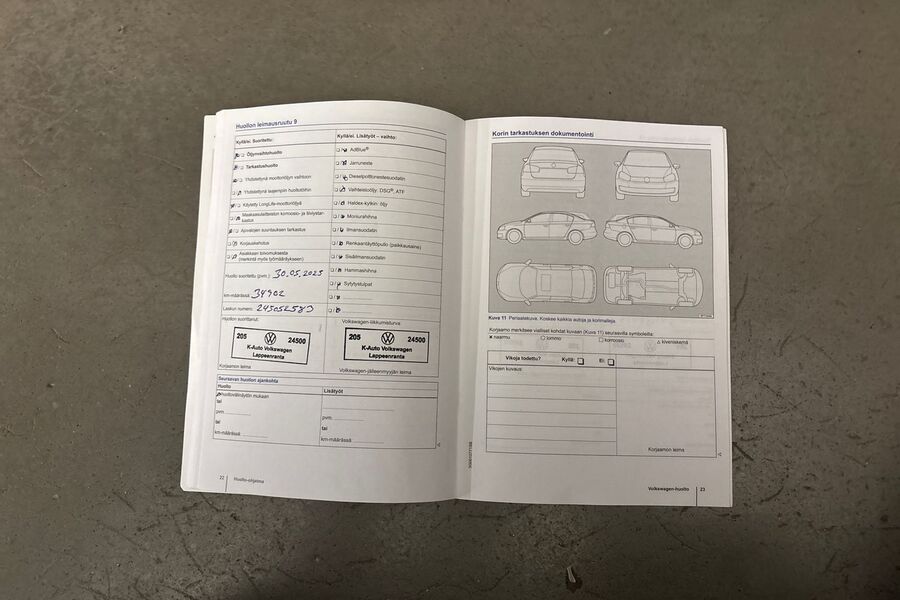 Huollon leimausruutu 9
Kyllä/ei. Suoritettu:
Öljynvaihtohuolto
Tarkastushuolto
Yhdistettynä moottoriöljyn vaihtoon
Yhdistettynä laajempiin huoltotöihin
Käytetty LongLife-moottoriöljyä
Maakaasulaitteiston korroosio- ja tiiviystarkastus
Ajovalojen suuntauksen tarkastus
Korjauskehotus
Asiakkaan toivomuksesta
(merkintä myös työmääräykseen)
Huolto suoritettu (pvm.): 30.05.2025
km-määrässä: 34902
Laskun numero:
Huollon suorittanut:
205 24500
K-Auto Volkswagen
Lappeenranta
Korjaamon leima
Kyllä/ei. Lisätyöt – vaihto:
AdBlue®
Jarruneste
Dieselpolttonestesuodatin
Vaihteistoöljy: DSG®, ATF
Haldex-kytkin: öljy
Moniurahihna
Ilmansuodatin
Renkaantäyttöpullo (paikkausaine)
Sisäilmansuodatin
Hammashihna
Sytytystulpat
Volkswagen-liikkumisturva
205 24500
K-Auto Volkswagen
Lappeenranta
Volkswagen-jälleenmyyjän leima
Seuraavan huollon ajankohta
Huolto
Huoltovälinäytön mukaan
tai
pvm.
tai
km-määrässä:
Lisätyöt
pvm:
tai
km-määrässä
22 Huolto-ohjelma
Korin tarkastuksen dokumentointi
Kuva 11 Periaatekuva. Koskee kaikkia autoja ja korimalleja.
Korjaamo merkitsee vialliset kohdat kuvaan (Kuva 11) seuraavilla symboleilla:
x naarmu ○ lommo □ korroosio △ kiveniskemä
Vikoja todettu? Kyllä: Ei:
Vikojen kuvaus:
Korjaamon leima
Volkswagen-huolto 23